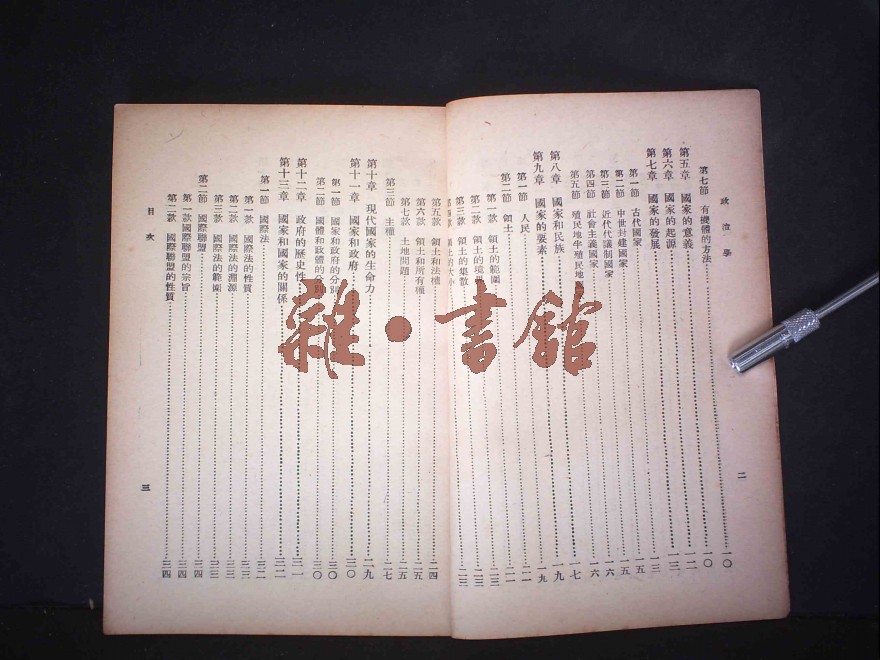 政治學
第七節 有機體的方法 一〇
第五章 國家的意義 一〇
第六章 國家的起源 一二
第七章 國家的發展 一三
第一節 古代國家 一三
第二節 中世封建國家 一五
第三節 近代代議制國家 一六
第四節 社會主義國家 一六
第五節 殖民地半殖民地 一七
第八章 國家和民族 一九
第九章 國家的要素 一九
第一節 人民 二一
第二節 領土 二二
第一款 領土的範圍 二三
第二款 領土的境界 二三
第三款 領土的集散 二三
第四款 領土的大小
二
第五款 領土和法權 二四
第六款 領土和所有權 二五
第七款 土地問題 二五
第三節 主權 二七
第十章 現代國家的生命力 二九
第十一章 國家和政府 三〇
第一節 國家和政府的分別 三〇
第二節 國體和政體的分別 三〇
第十二章 政府的歷史性 三一
第十三章 國家和國家的關係 三二
第一節 國際法 三二
第一款 國際法的性質 三三
第二款 國際法的淵源 三三
第三款 國際法的範圍 三三
第二節 國際聯盟 三四
第一款 國際聯盟的宗旨 三四
第二款 國際聯盟的性質 三四
目次
三
雜·書館